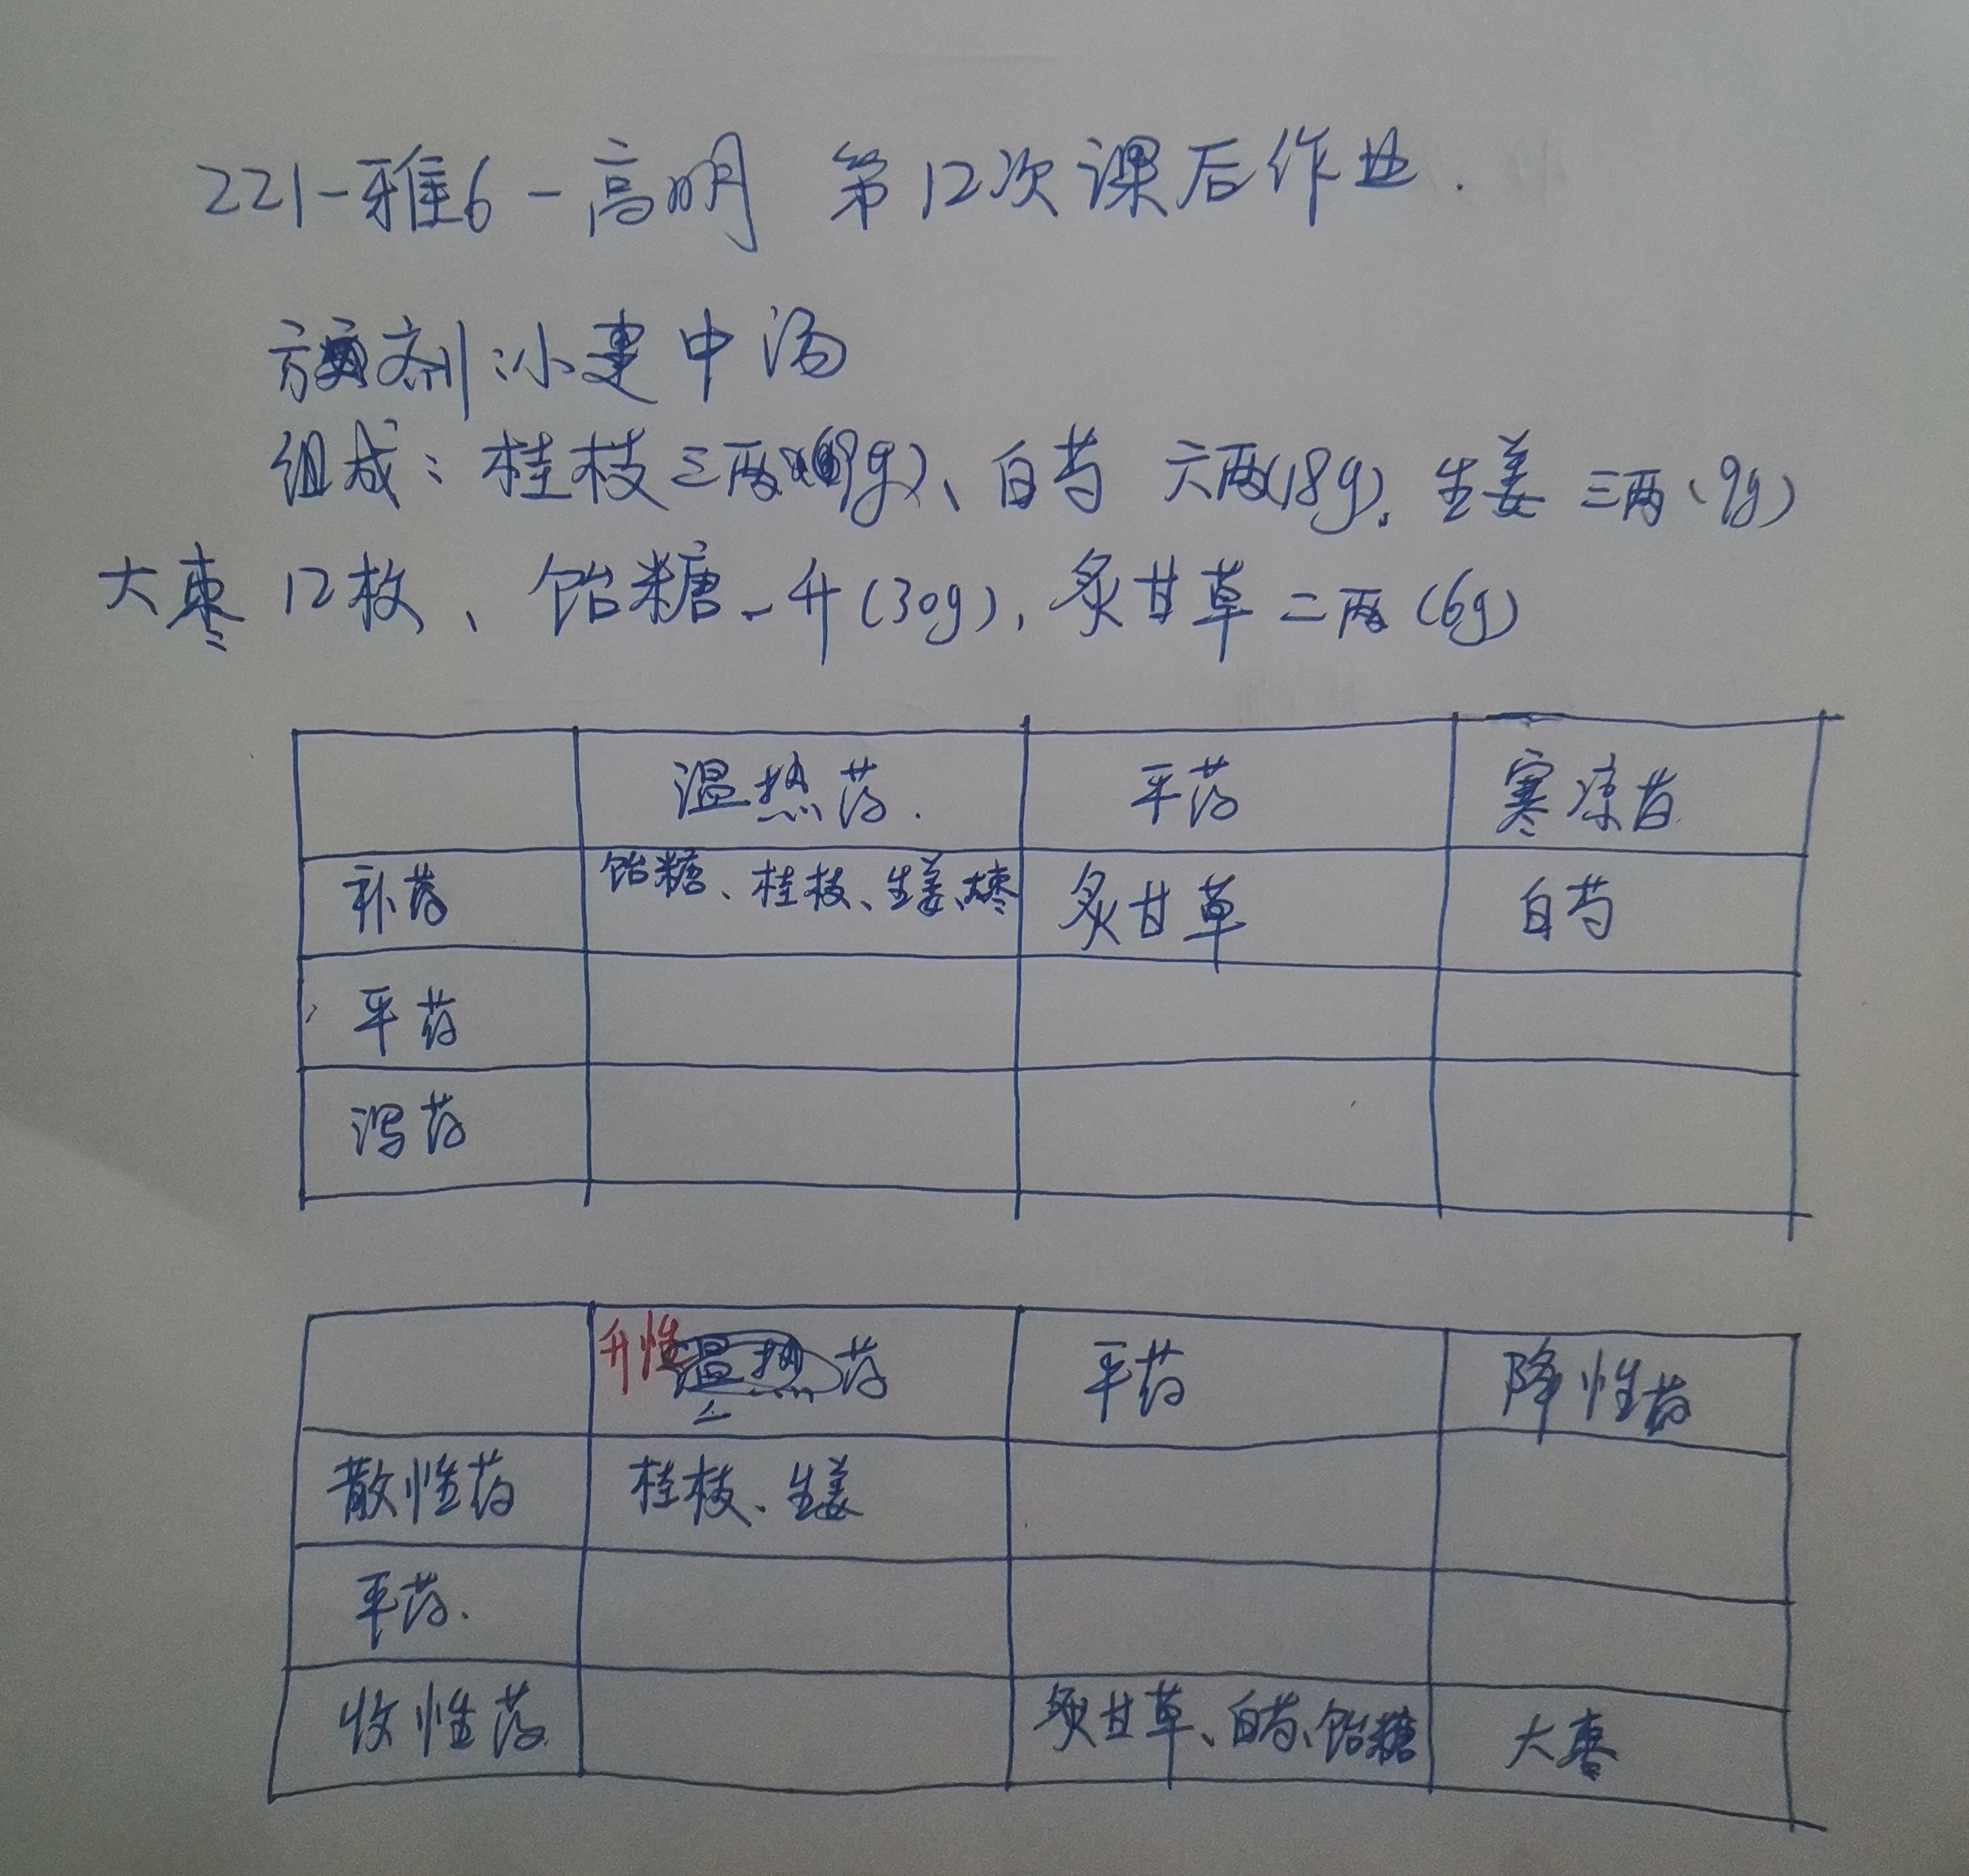 221-雅6-高明 第12次课后作业.
方剂:小建中汤
组成:桂枝三两(9g)、白芍 六两(18g)、生姜 三两(9g)
大枣 12枚、饴糖一升(30g),炙甘草二两(6g)
温热药. 平药 寒凉药
补药 饴糖、桂枝、生姜、大枣 炙甘草 白芍
平药
泻药
升性药 平药 降性药
散性药 桂枝、生姜
平药.
收性药 炙甘草、白芍、饴糖 大枣